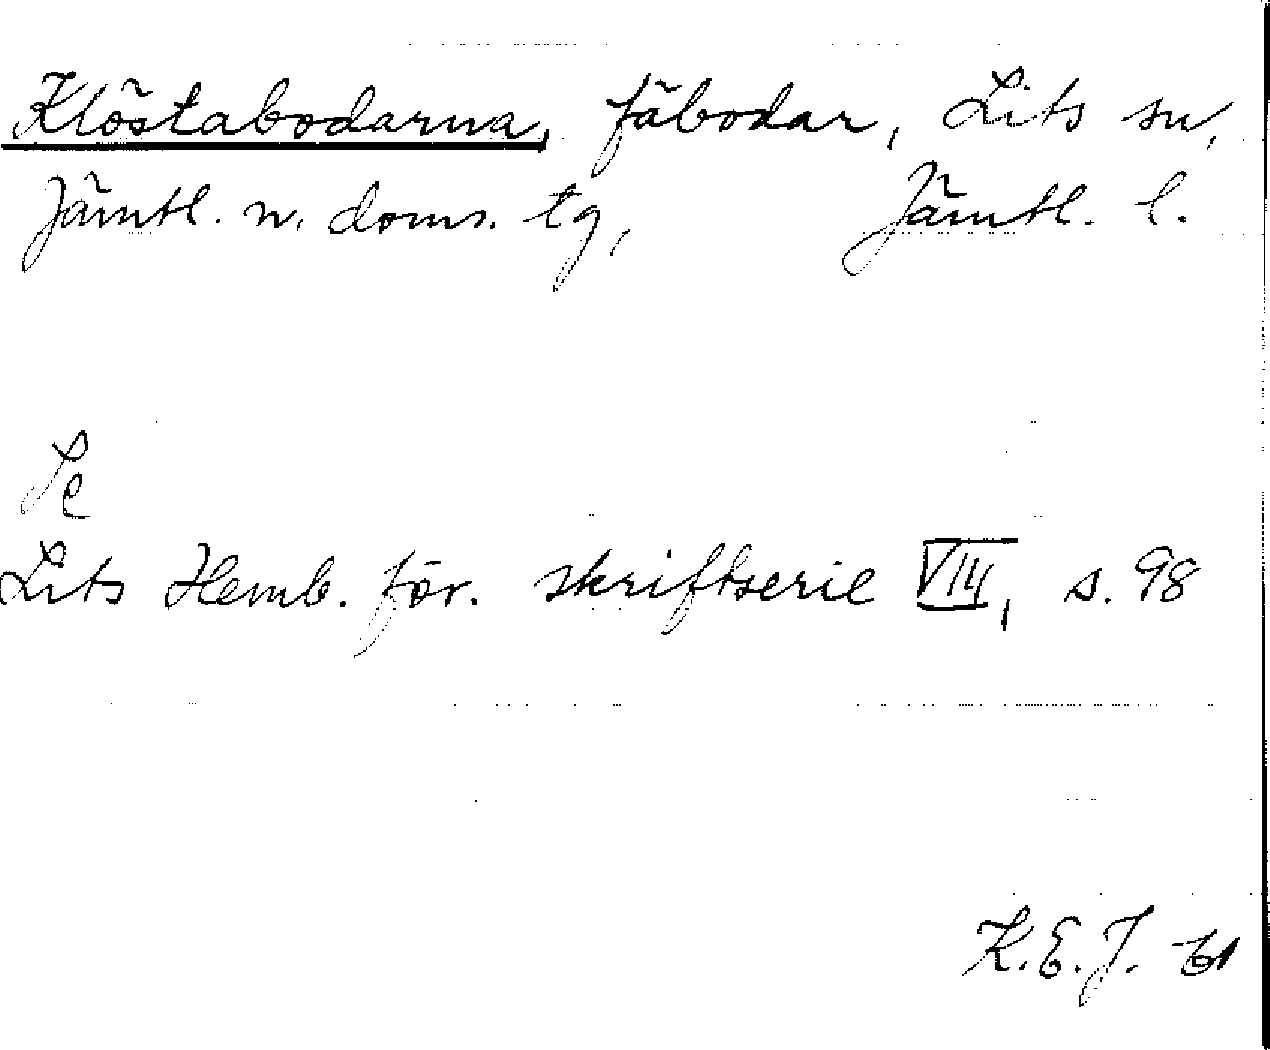 Klöstabodarna, fäbodar, Lits sn,
Jämtl. n. doms. tg, Jämtl. l.
Se
Lits Hemb. för. skriftserie VIII, s. 98
K.E.J. 61